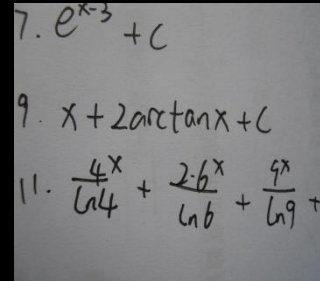 7. e^{x-3} + C
9. x + 2arctanx + C
11. \frac{4^x}{ln4} + \frac{2·6^x}{ln6} + \frac{9^x}{ln9} +